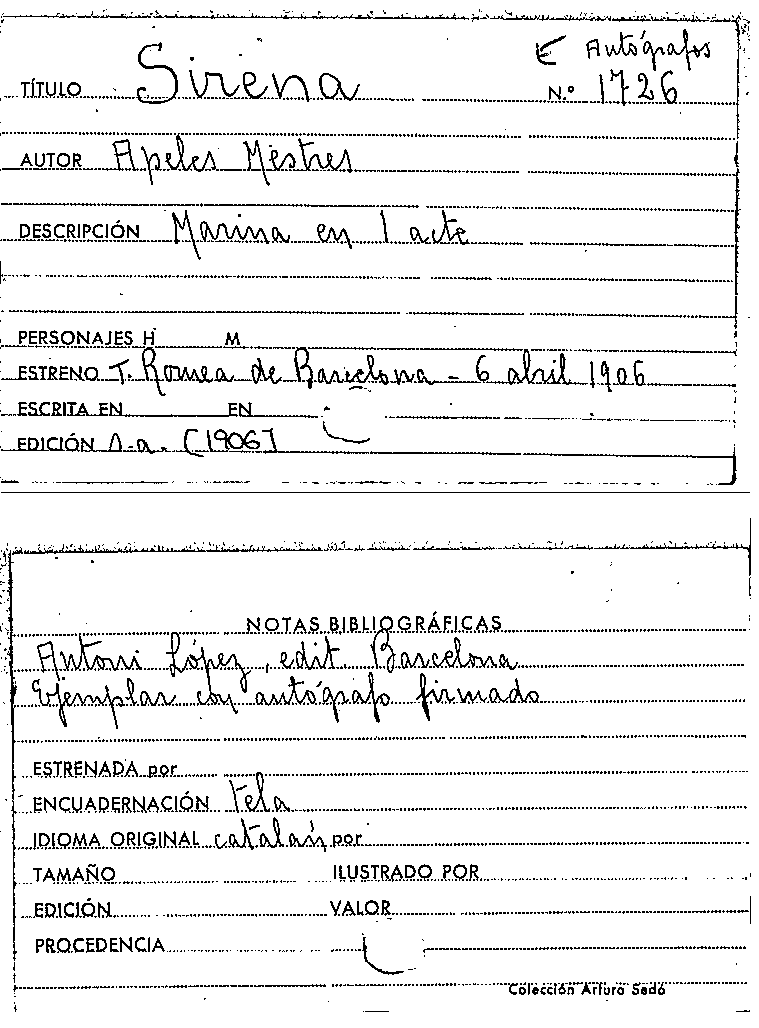 E Autógrafos
TÍTULO Sirena N.º 1726
AUTOR Apeles Mestres
DESCRIPCIÓN Marina en 1 acte
PERSONAJES H M
ESTRENO T. Romea de Barcelona - 6 abril 1906
ESCRITA EN EN
EDICIÓN s.a. [1906]
NOTAS BIBLIOGRÁFICAS
Antoni López, edit. Barcelona
Ejemplar con autógrafo firmado
ESTRENADA por
ENCUADERNACIÓN tela
IDIOMA ORIGINAL catalán por
TAMAÑO ILUSTRADO POR
EDICIÓN VALOR
PROCEDENCIA
Colección Arturo Sedó